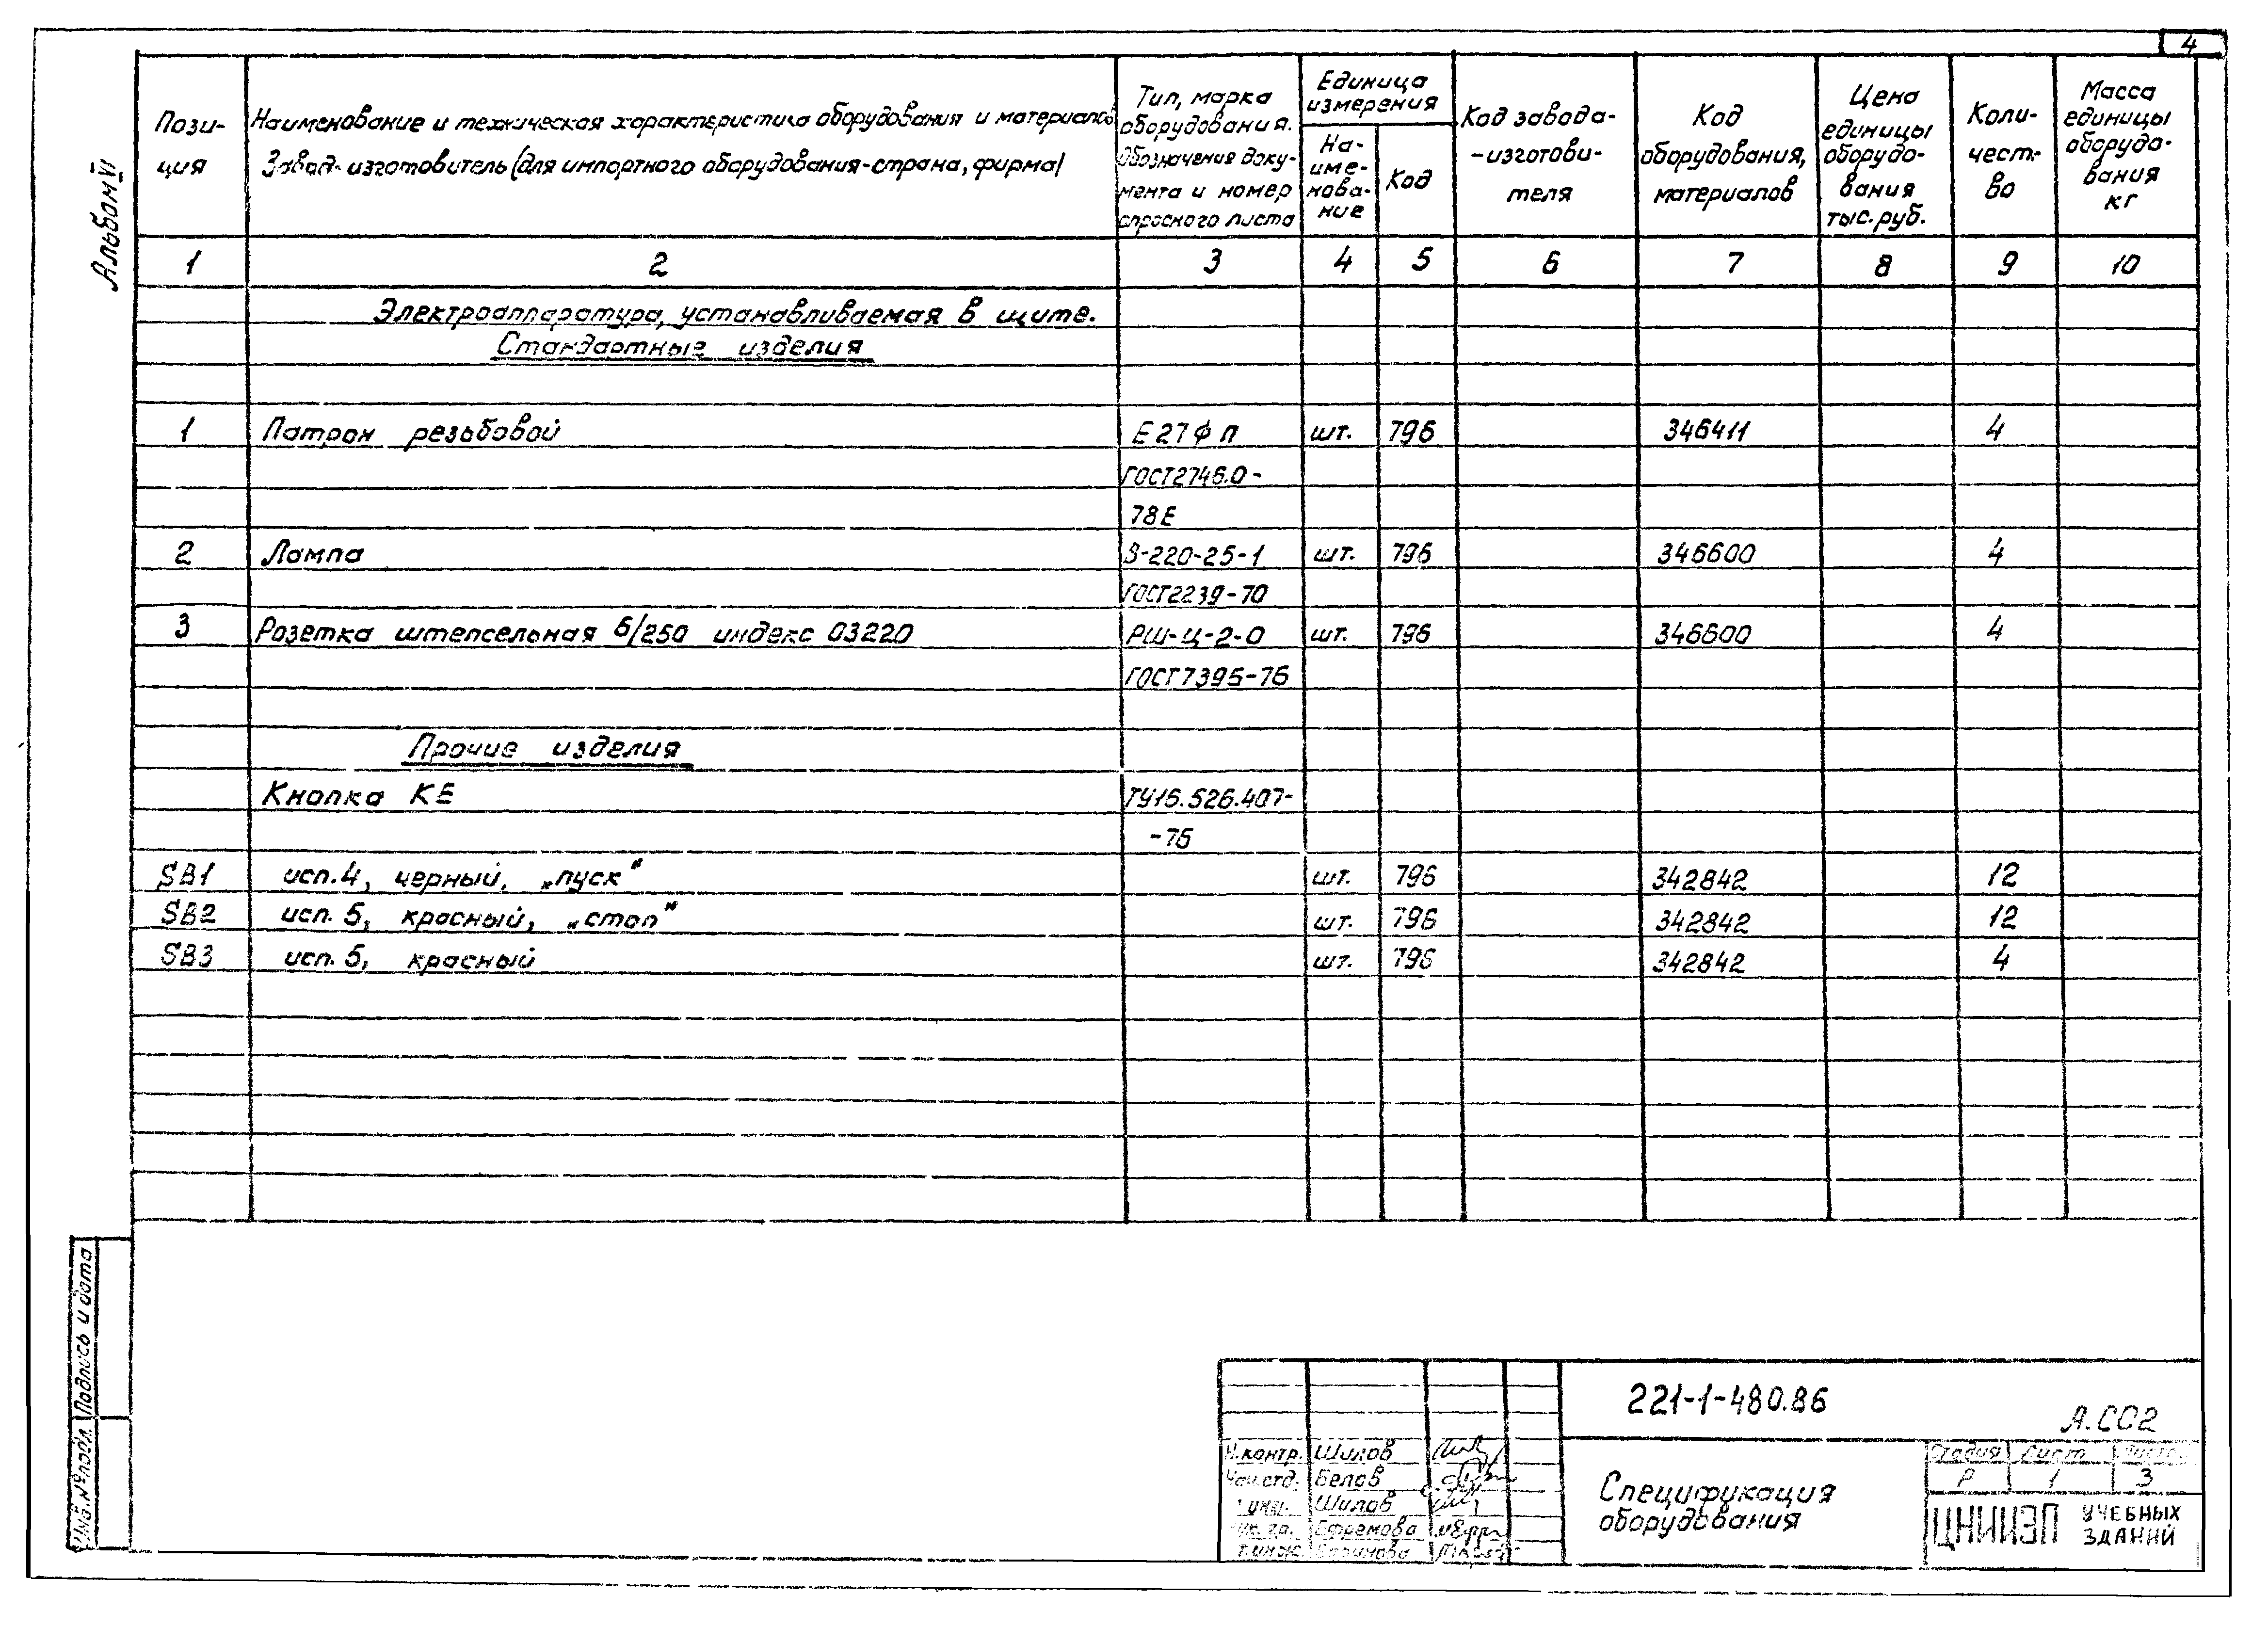 4
Альбом VI
Пози-
ция
Наименование и техническая характеристика оборудования и материалов
Завод-изготовитель (для импортного оборудования-страна, фирма)
Тип, марка
оборудования.
Обозначение доку-
мента и номер
опросного листа
Единица
измерения
На-
име-
нова-
ние
Код
Код завода-
-изготови-
теля
Код
оборудования,
материалов
Цена
единицы
оборудо-
вания
тыс.руб.
Коли-
чест-
во
Масса
единицы
оборудо-
вания
кг
1 2 3 4 5 6 7 8 9 10
Электроаппаратура, устанавливаемая в щите.
Стандартные изделия
1 Патрон резьбовой Е27ФП шт. 796 346411 4
ГОСТ2746.0-
78Е
2 Лампа В-220-25-1 шт. 796 346600 4
ГОСТ2239-70
3 Розетка штепсельная 6/250 индекс 03220 РШ-Ц-2-0 шт. 796 346600 4
ГОСТ7395-76
Прочие изделия
Кнопка КЕ ТУ16.526.407-
-76
SB1 исп.4, черный, „пуск“ шт. 796 342842 12
SB2 исп. 5, красный, „стоп“ шт. 796 342842 12
SB3 исп. 5, красный шт. 796 342842 4
Подпись и дата
Инв.№подл.
221-1-480.86
А.СО2
Н.контр. Шилов
Нач.отд. Белов
Шилов
Ефремова
Спецификация
оборудования
Стадия Лист Листов
Р 1 3
ЦНИИЭП УЧЕБНЫХ
ЗДАНИЙ